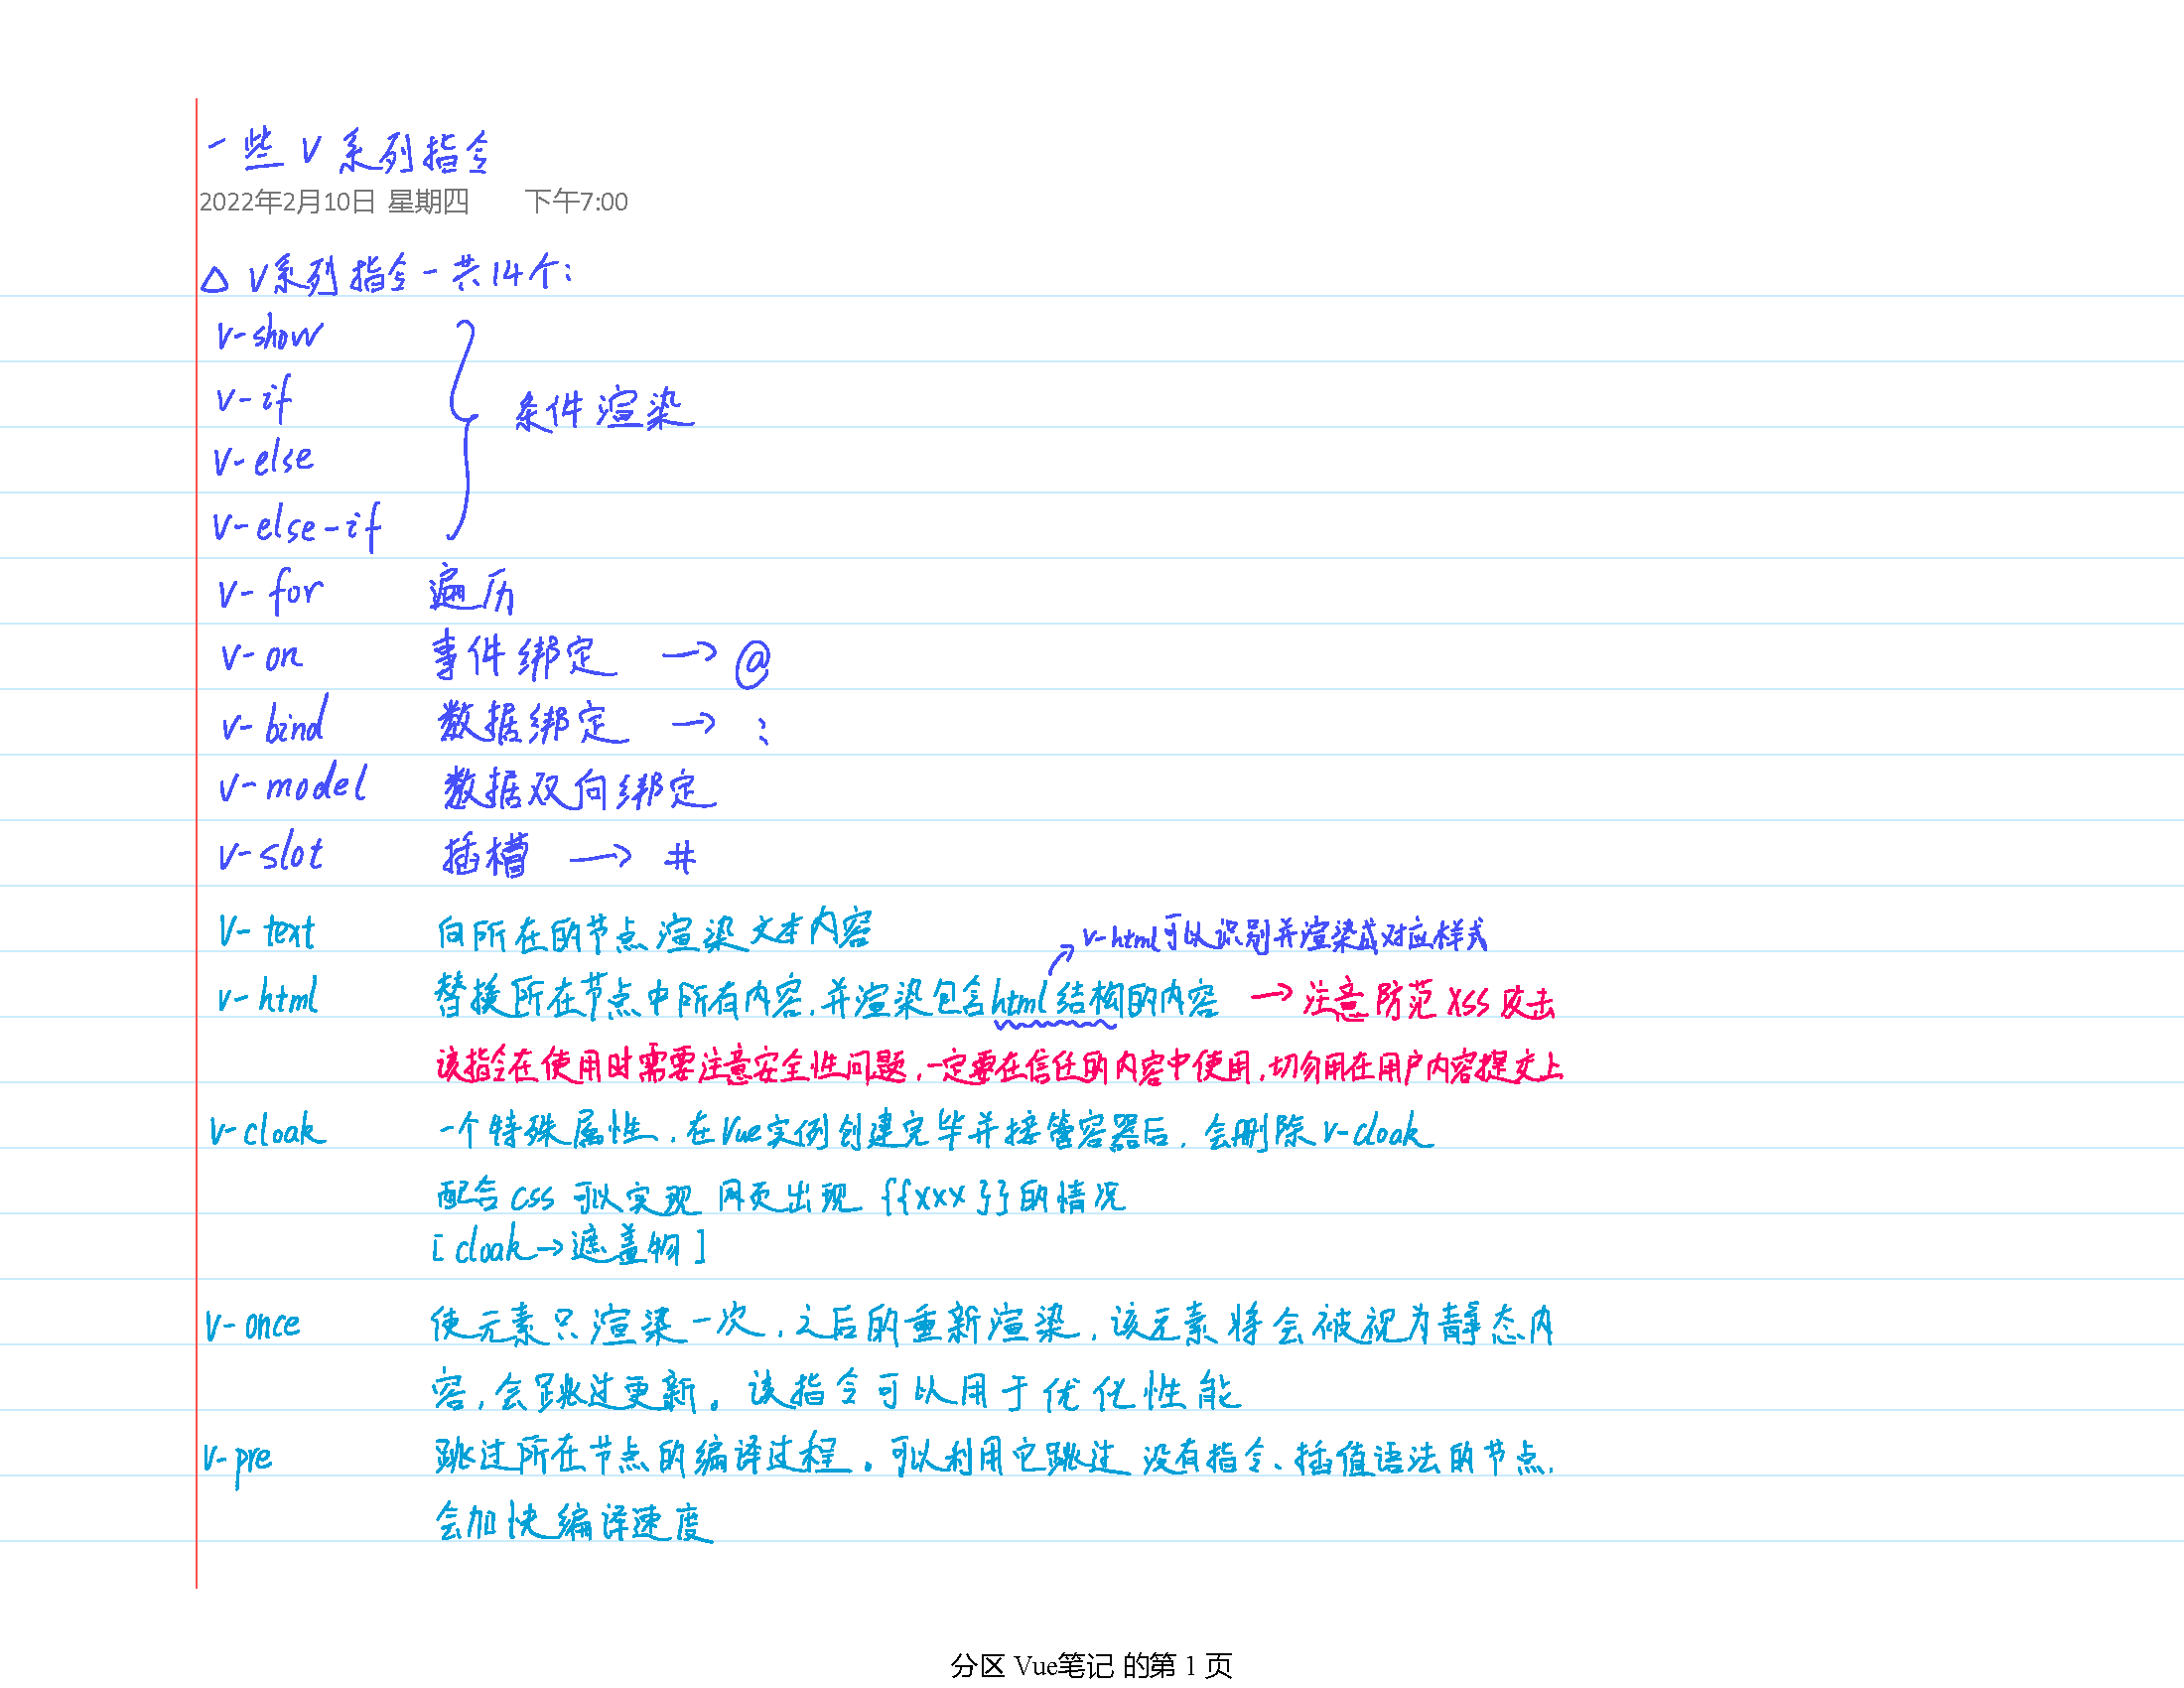 一些 V 系列指令
2022年2月10日 星期四 下午7:00
△ V系列指令一共14个:
v-show
v-if
条件渲染
v-else
v-else-if
v-for 遍历
v-on 事件绑定 → @
v-bind 数据绑定 → :
v-model 数据双向绑定
v-slot 插槽 → #
v-text 向所在的节点渲染文本内容
v-html可以识别并渲染成对应样式
v-html 替换所在节点中所有内容,并渲染包含html结构的内容 → 注意防范XSS攻击
该指令在使用时需要注意安全性问题,一定要在信任的内容中使用,切勿用在用户内容提交上
v-cloak 一个特殊属性,在Vue实例创建完毕并接管容器后,会删除v-cloak
配合css可以实现 网页出现 {{xxx}}的情况
[cloak→遮盖物]
v-once 使元素只渲染一次,之后的重新渲染,该元素将会被视为静态内
容,会跳过更新。该指令可以用于优化性能
v-pre 跳过所在节点的编译过程。可以利用它跳过 没有指令、插值语法的节点,
会加快编译速度
分区 Vue笔记 的第 1 页